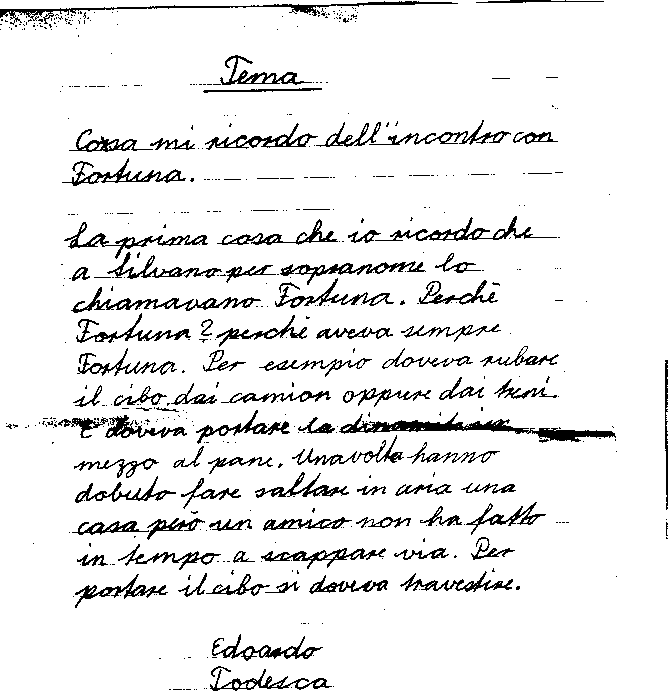 Tema
Cosa mi ricordo dell'incontro con
Fortuna.
La prima cosa che io ricordo che
a Silvano per sopranome lo
chiamavano Fortuna. Perchè
Fortuna? perchè aveva sempre
Fortuna. Per esempio doveva rubare
il cibo dai camion oppure dai treni.
E doveva portare la dinamite in
mezzo al pane. Unavolta hanno
dobuto fare saltare in aria una
casa però un amico non ha fatto
in tempo a scappare via. Per
portare il cibo si doveva travestire.
Edoardo
Todesca